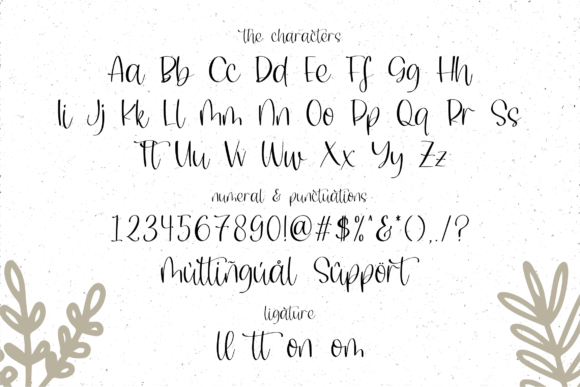 the characters
Aa Bb Cc Dd Ee Ff Gg Hh
Ii Jj Kk Ll Mm Nn Oo Pp Qq Rr Ss
Tt Uu Vv Ww Xx Yy Zz
numeral & punctuations
1234567890!@#$%^&*(),./?
Mùltîlñgúål Sûppört
ligature
ll tt on om